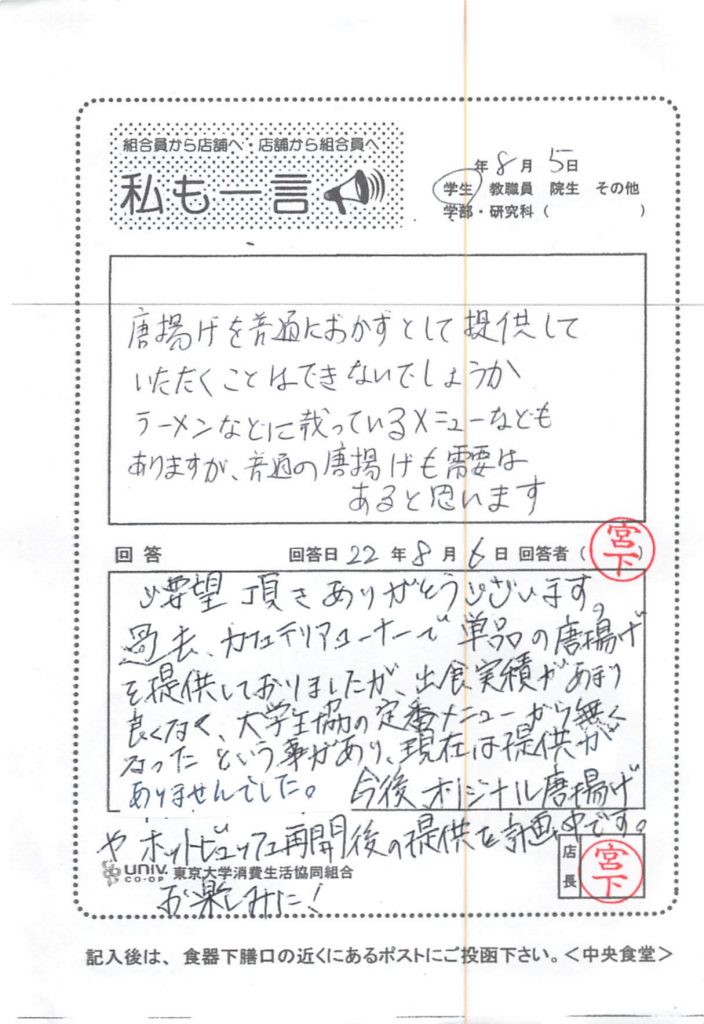 組合員から店舗へ・店舗から組合員へ
私も一言
年 8 月 5 日
学生 教職員 院生 その他
学部・研究科 ( )
唐揚げを普通におかずとして提供して
いただくことはできないでしょうか
ラーメンなどに載っているメニューなども
ありますが、普通の唐揚げも需要は
あると思います
回答 回答日 22 年 8 月 6 日 回答者 ( 宮下 )
ご要望頂きありがとうございます。
過去、カフェテリアコーナーで単品の唐揚げ
を提供しておりましたが、出食実績があまり
良くなく、大学生協の定番メニューから無く
なったという事があり、現在は提供が
ありませんでした。 今後、オリジナル唐揚げ
やホットビュッフェ再開後の提供を計画中です。
UNIV. CO-OP 東京大学消費生活協同組合
店長 宮下
お楽しみに!
記入後は、食器下膳口の近くにあるポストにご投函下さい。<中央食堂>